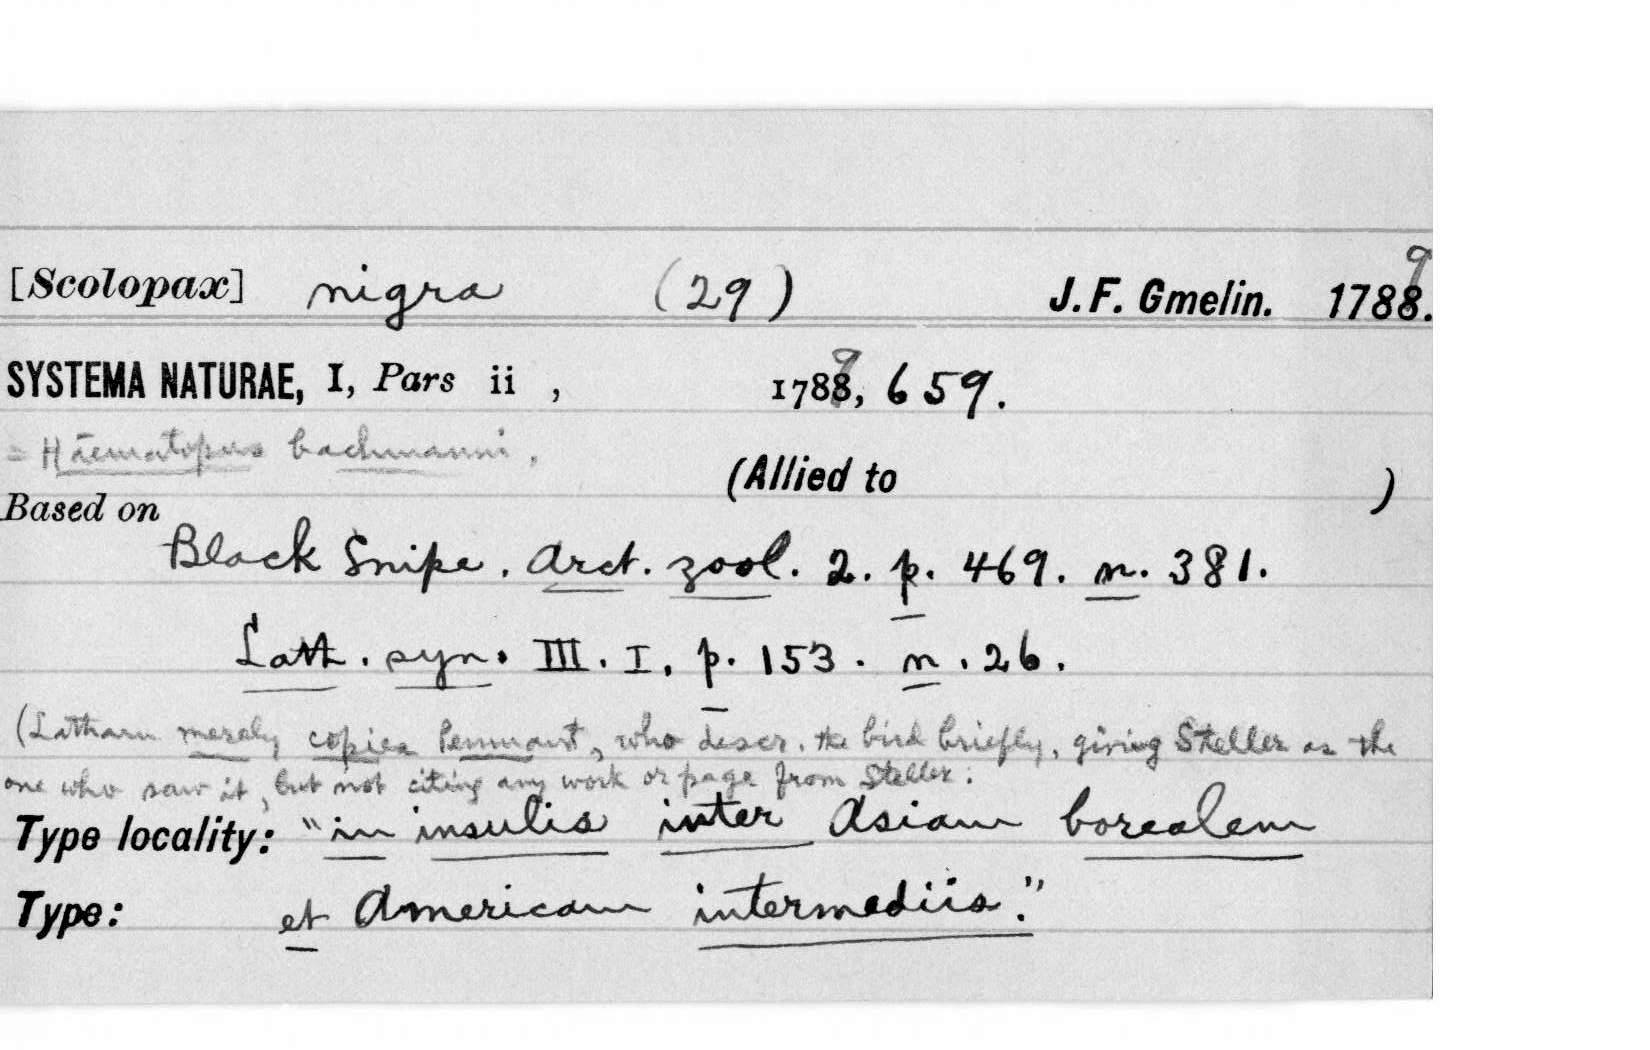 [Scolopax] nigra (29) J. F. Gmelin. 1788. 9
SYSTEMA NATURAE, I, Pars ii , 1788, 9 659.
= Haematopus bachmanni.
(Allied to )
Based on
Black Snipe. Arct. zool. 2. p. 469. n. 381.
Lath. syn. III. I. p. 153. n. 26.
(Latham merely copies Pennant, who descr. the bird briefly, giving Steller as the
one who saw it, but not citing any work or page from Steller.
Type locality: "in insulis inter Asiam borealem
Type: et Americam intermediis."